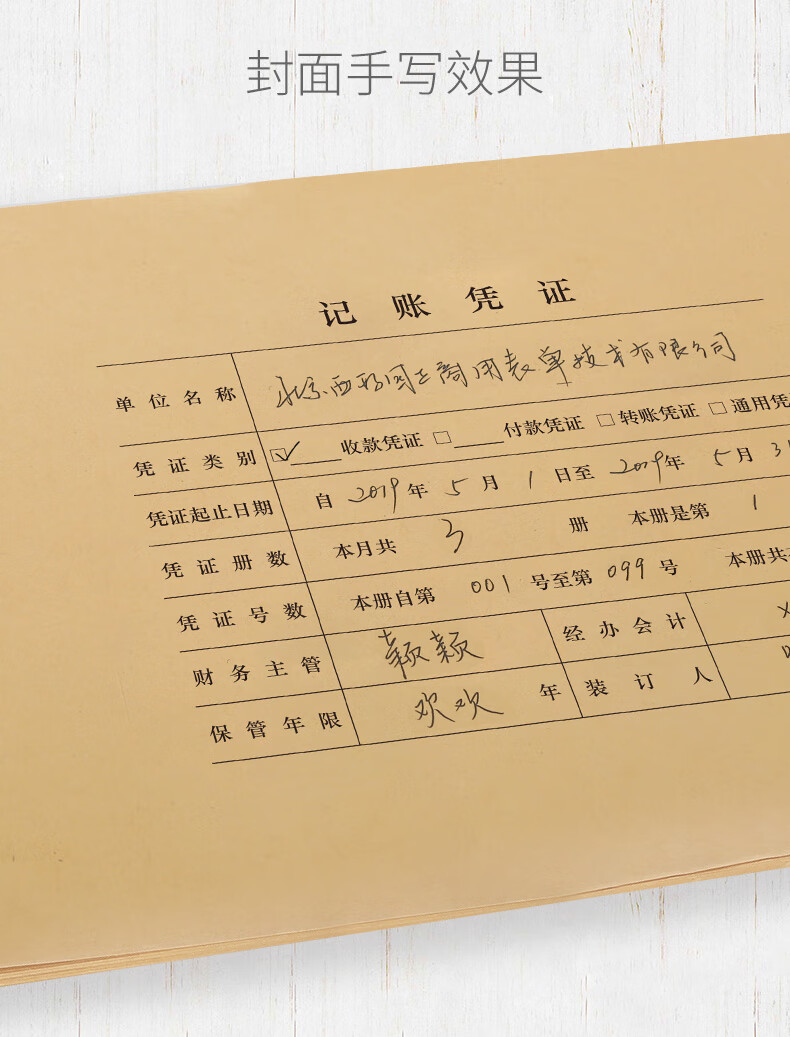 封面手写效果
记账凭证
单位名称 北京西玛园正商用表单技术有限公司
凭证类别 ☑____收款凭证 □____付款凭证 □转账凭证 □通用凭
凭证起止日期 自 2019 年 5 月 1 日至 2019 年 5 月 31
凭证册数 本月共 3 册 本册是第 1
凭证号数 本册自第 001 号至第 099 号 本册共
财务主管 颖颖 经办会计
保管年限 欢欢 年 装订人